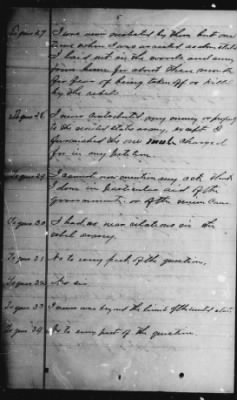 To ques 27 I was never molested by them but one
time when I was arrested as above stated
I laid out in the woods and away
from home for about three months
for fear of being taken off or killed
by the rebels
To ques 28 I never contributed any money or property
to the united states army, except I
furnished the one mule charged
for in my petition
To ques 29 I cannot now mention any act that
I done in particular aid of the
government or of the union cause
To ques 30 I had no near relations in the
rebel army.
To ques 31 No to every part of the question.
To ques 32 No sir
To ques 33 I never was beyond the limits of the united states
To ques 34 No to every part of the question